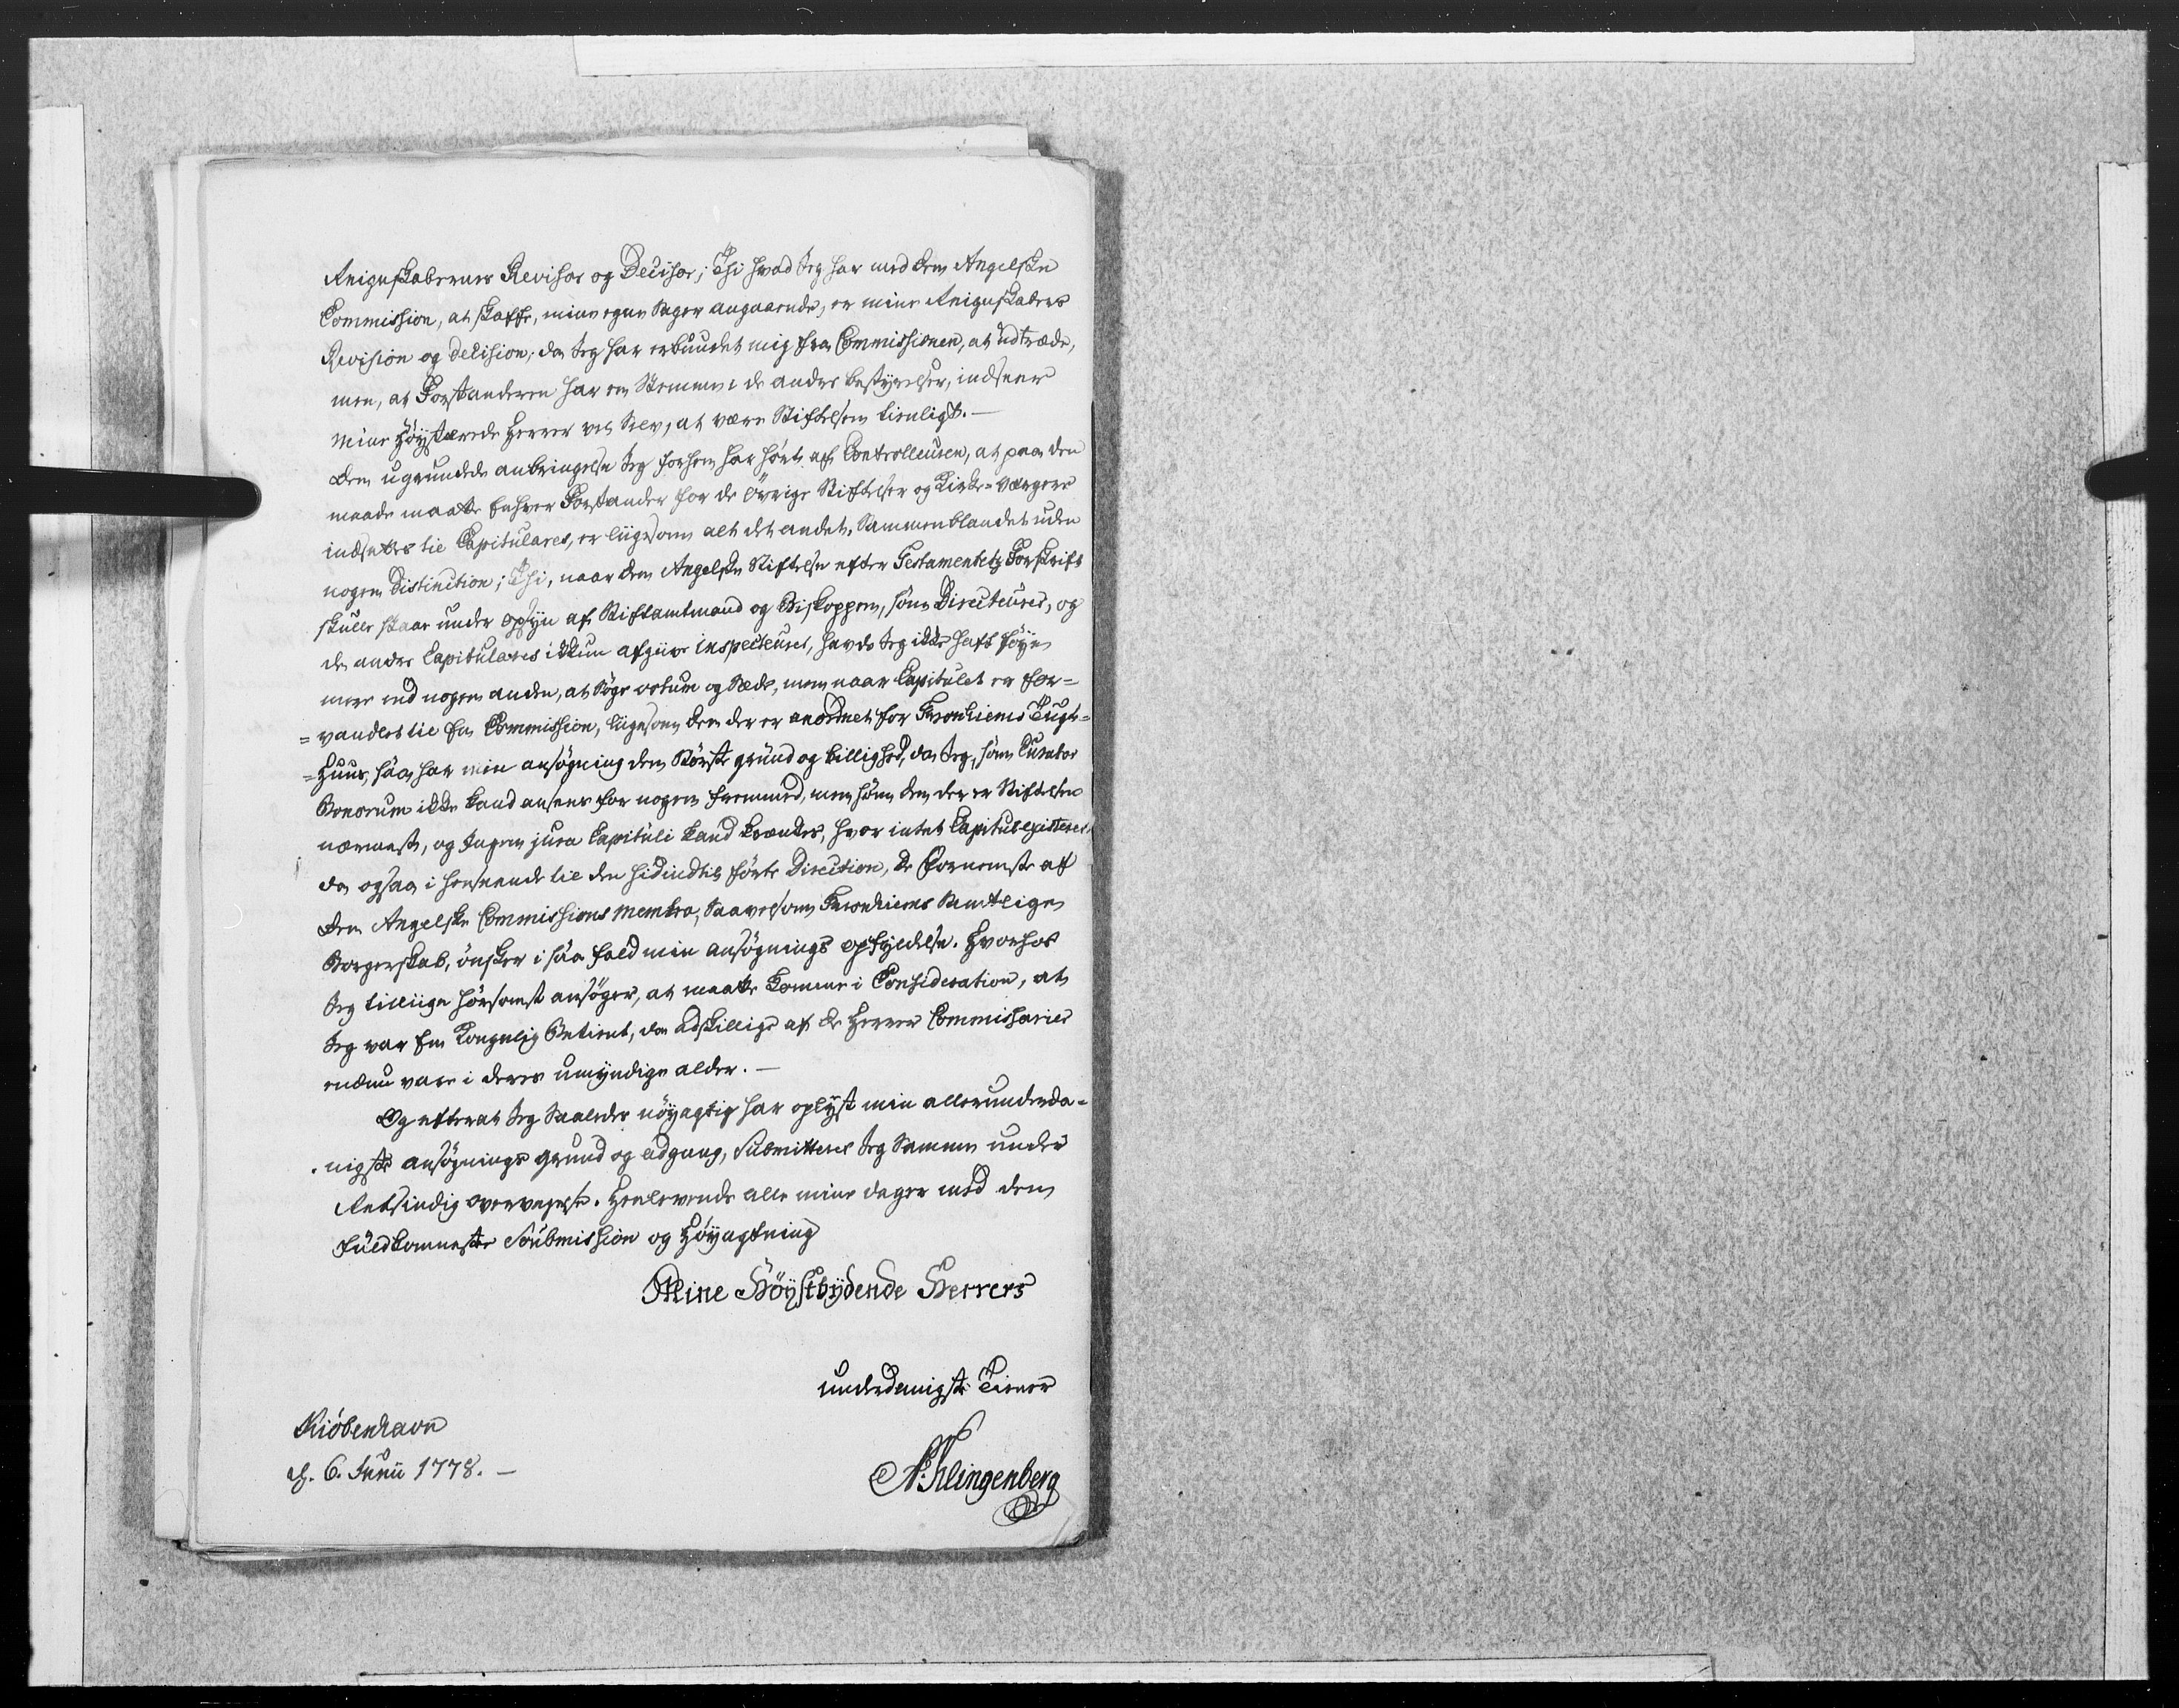 Reignskabernes Revisor og Decisor; Thi hvad Jeg har med den Angelske
Commission, at skaffe, mine egne Sager angaaende, er mine Reignskabers
Revision og decision; da Jeg har erbuudet mig fra Commissionen, at udtræde,
men, at Forstanderen har en Stemme i de andre bestyrelser, indseer
mine Høystærede Herrer vel Selv, at være Stiftelsen tienligt.—
Den ugrundede anbringelse Jeg forhen har hørt af Controlleuren, at paa den
maade maatte Enhver Forstander for de Øvrige Stiftelser og Kirke-værgere
indsættes til Capitulares, er liigesom alt det andet, Sammenblandet uden
nogen Distinction; Thi, naar den Angelske Stiftelse efter Testamentets Forskrift
skulle staae under Opsyn af Stiftamtmand og Biskoppen, som Directeurer, og
de andre Capitulares ikkun afgiive inspecteurer, havde Jeg ikke haft føye
mere end nogen anden, at Søge votum og Sæde, men naar Capitulet er for=
=vandlet til En Commission, liigesom den der er anordnet for Tronhiems Tugt=
=Huus, saa har min ansøgning den Største grund og billighed, da Jeg, som Curator
Bonorum ikke kand ansees for nogen fremmed, men som den der er Stiftelsen
nærmest, og Ingen jura Capituli kand krænkes, hvor intet Capitul existerer
da ogsaa i henseende til den hidindtil førte Direction, de Fornemste af
den Angelske Commissions membra, Saavelsom Tronhiems Samtlige
Borgerskab, ønsker i saa fald min ansøgnings opfyldelse. Hvorhos
Jeg tilliige hørsomst ansøger, at maatte komme i Consideration, at
Jeg var En Kongelig Betient, da adskillige af de Herrer Commissarier
endnu vare i deres umyndige alder.—
Og efterat Jeg Saaledes nøyagtig har oplyst min allerunderda=
nigste ansøgnings grund og adgang, Submitterer Jeg Samme under
Retsindig overveyelse. Henlevende alle mine dager med den
fuldkomneste Soubmission og Høyagtning
Mine Høystbydende Herrers
underdanigste Tiener
Kiöbenhavn
d. 6. Junii 1778.—
A:Klingenberg